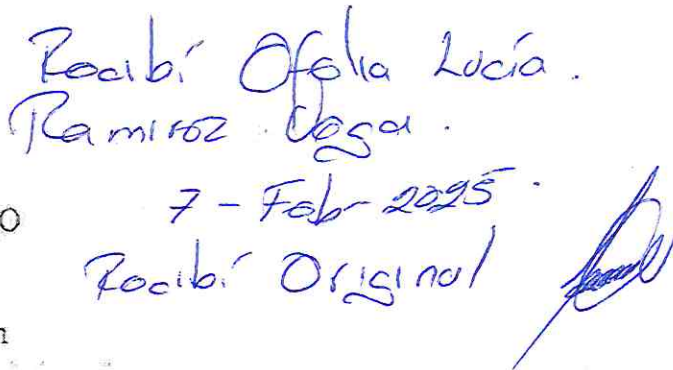 Recibí Ofelia Lucía.
Ramirez Vega.
7 - Feb - 2025.
O
Recibí Original
n